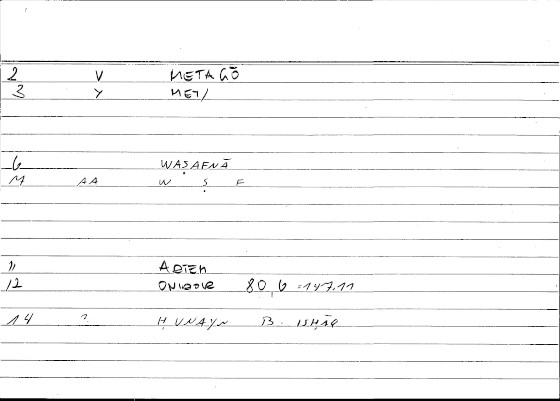 2 V METAGŌ
3 Y MET/
6 WAṢAFNĀ
M AA W Ṣ F
11 ARTEM
12 ONIROCR 80,6 = 147.11
14 ? ḤUNAYN B. ISḤĀQ